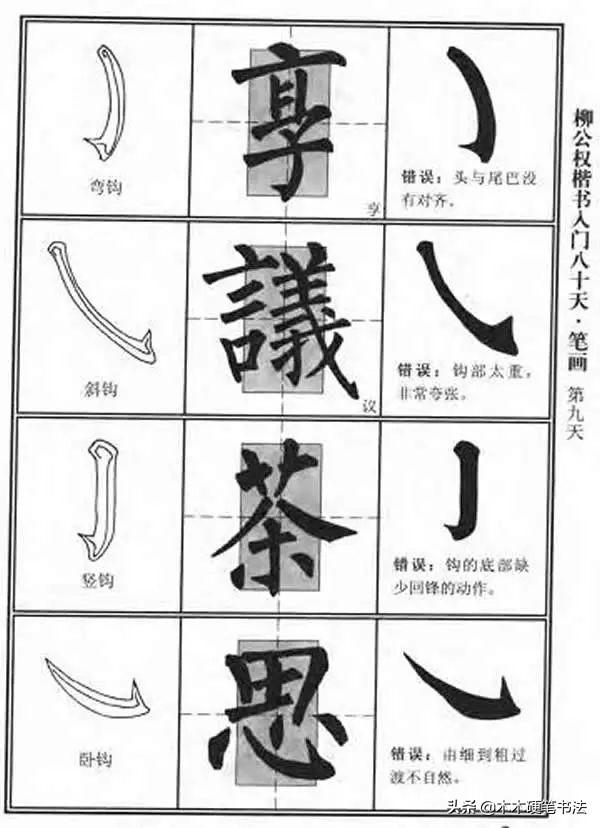 弯钩
享
享
错误：头与尾巴没
有对齐。
斜钩
議
议
错误：钩部太重，
非常夸张。
竖钩
茶
错误：钩的底部缺
少回锋的动作。
卧钩
思
错误：由细到粗过
渡不自然。
柳公权楷书入门八十天·笔画 第九天
头条@木木硬笔书法